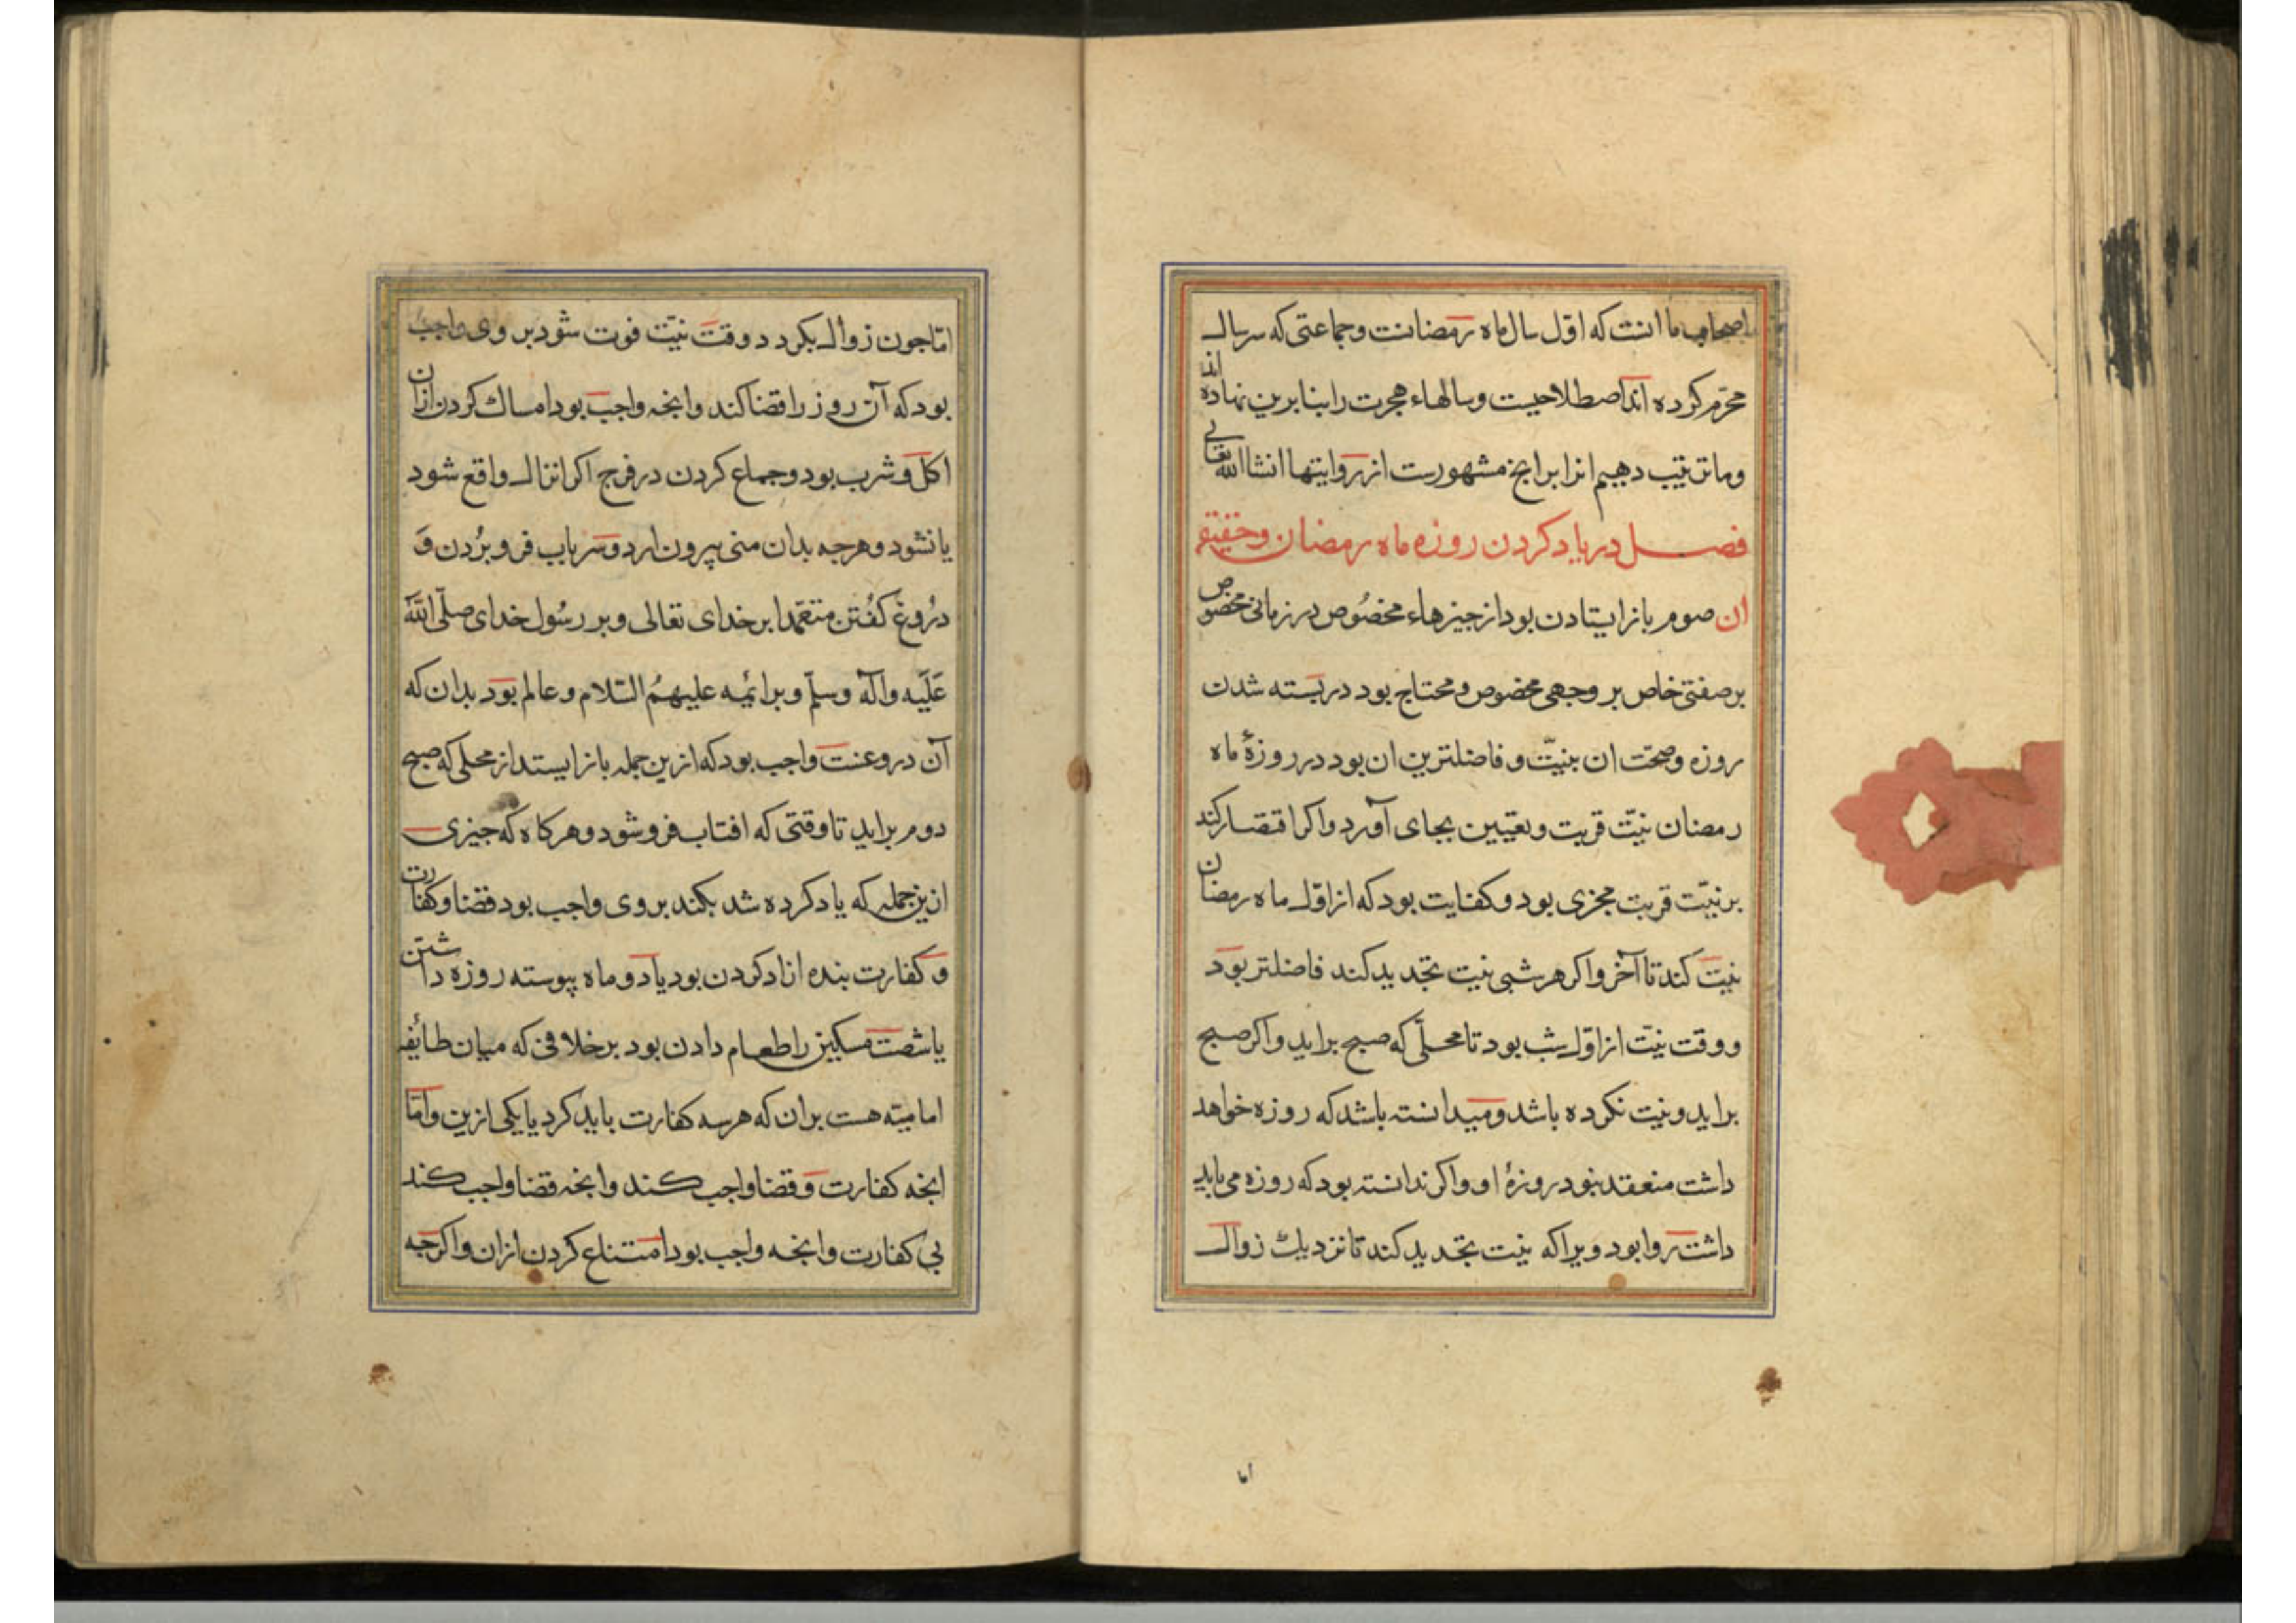 اصحاب ما انست که اوّل سال ماه رمضانست وجماعتی که سرسال
محرّم کرده اند اصطلاحیست وسالهاء هجرت را بنا برین نهاده اند
وما ترتیب دهیم انرا برانج مشهورست از روایتها انشاالله تعالی
فصل در یاد کردن روزه ماه رمضان وحقیقة
ان صوم باز ایستادن بود از جیزهاء مخصُوص در زمانی مخصوص
بر صفتی خاص بر وجهی مخصوص ومحتاج بود در بسته شدن
روزه وصحّت ان بنیّت وفاضلترین ان بود در روزهٔ ماه
رمضان نیّت قربت وتعیین بجای آورد واکر اقتصار کند
بر نیّت قربت مجزی بود وکفایت بود که از اوّل ماه رمضان
نیت کند تا آخر واکر هر شبی نیت تجدید کند فاضلتر بود
ووقت نیّت از اوّل شب بود تا محلّی که صبح براید واکر صبح
براید ونیت نکرده باشد ومیدانسته باشد که روزه خواهد
داشت منعقد نبود روزهٔ او واکر ندانسته بود که روزه می باید
داشت روا بود ویرا که نیت تجدید کند تا نزدیک زوال
اما
امّا جون زوال بکردد وقت نیّت فوت شود بر وی واجب
بود که آن روز را قضا کند وانجه واجب بود امساک کردن ازان
اکل وشرب بود وجماع کردن در فرج اکر انزال واقع شود
یا نشود وهرجه بدان منی بیرون ارد وسر باب فرو بُردن وَ
دُروغ کفُتن متعمّدا بر خدای تعالی وبر رسُول خدای صلّی اللّه
عَلَیه وآله وسلّم وبر ائمه علیهمُ السّلام وعالم بود بدان که
آن دروغست واجب بود که ازین جمله باز ایستد از محلی که صبح
دوم براید تا وقتی که افتاب فرو شود وهرکاه که جیزی
ازین جمله که یاد کرده شد بکند بر وی واجب بود قضا وکفارت
وکفارت بنده ازاد کردن بود یا دو ماه پیوسته روزه داشتن
یا شصت مسکین را طعام دادن بود بر خلافی که میان طائفه
امامیّه هست بران که هر سه کفارت باید کرد یا یکی ازین وامّا
انجه کفارت وقضا واجب کند وانجه قضا واجب کند
بی کفارت وانجه واجب بود امتناع کردن ازان واکرجه